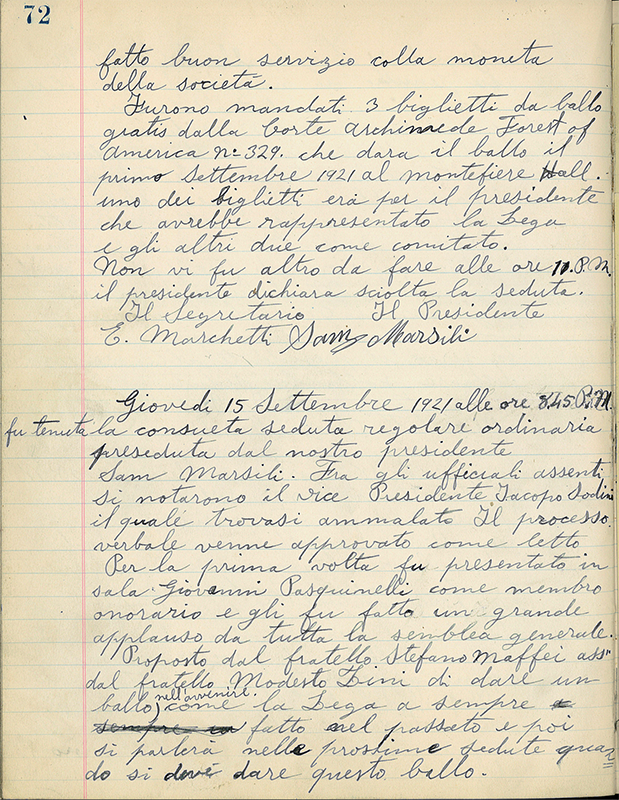 72
fatto buon servizio colla moneta
della societá.
Furono mandati 3 biglietti da ballo
gratis dalla Corte Archimede Forest of
America No. 329. che dara il ballo il
primo Settembre 1921 al Montefiere Hall.
uno dei biglietti era per il presidente
che avrebbe rappresentato la Lega
e gli altri due come comitato.
Non vi fu altro da fare alle ore 11. P.M.
il presidente dichiara sciolta la seduta.
Il Segretario Il Presidente
E. Marchetti Sam Marsili
Giovedi 15 Settembre 1921 alle ore 8.45 P.M.
fu tenuta la consueta seduta regolare ordinaria
preseduta dal nostro presidente
Sam Marsili. Fra gli ufficiali assenti
si notarono il vice Presidente Iacopo Sodini
il quale trovasi ammalato Il processo
verbale venne approvato come letto
Per la prima volta fu presentato in
sala Giovanni Pasquinelli come membro
onorario e gli fu fatto un grande
applauso da tutta la semblea generale.
Proposto dal fratello Stefano Maffei ass"
dal fratello Modesto Dini di dare un
ballo, nell'avvenire. come la Lega a sempre
sempre fatto nel passato e poi
si parlerà nelle prossime sedute quan
do si deve dare questo ballo.